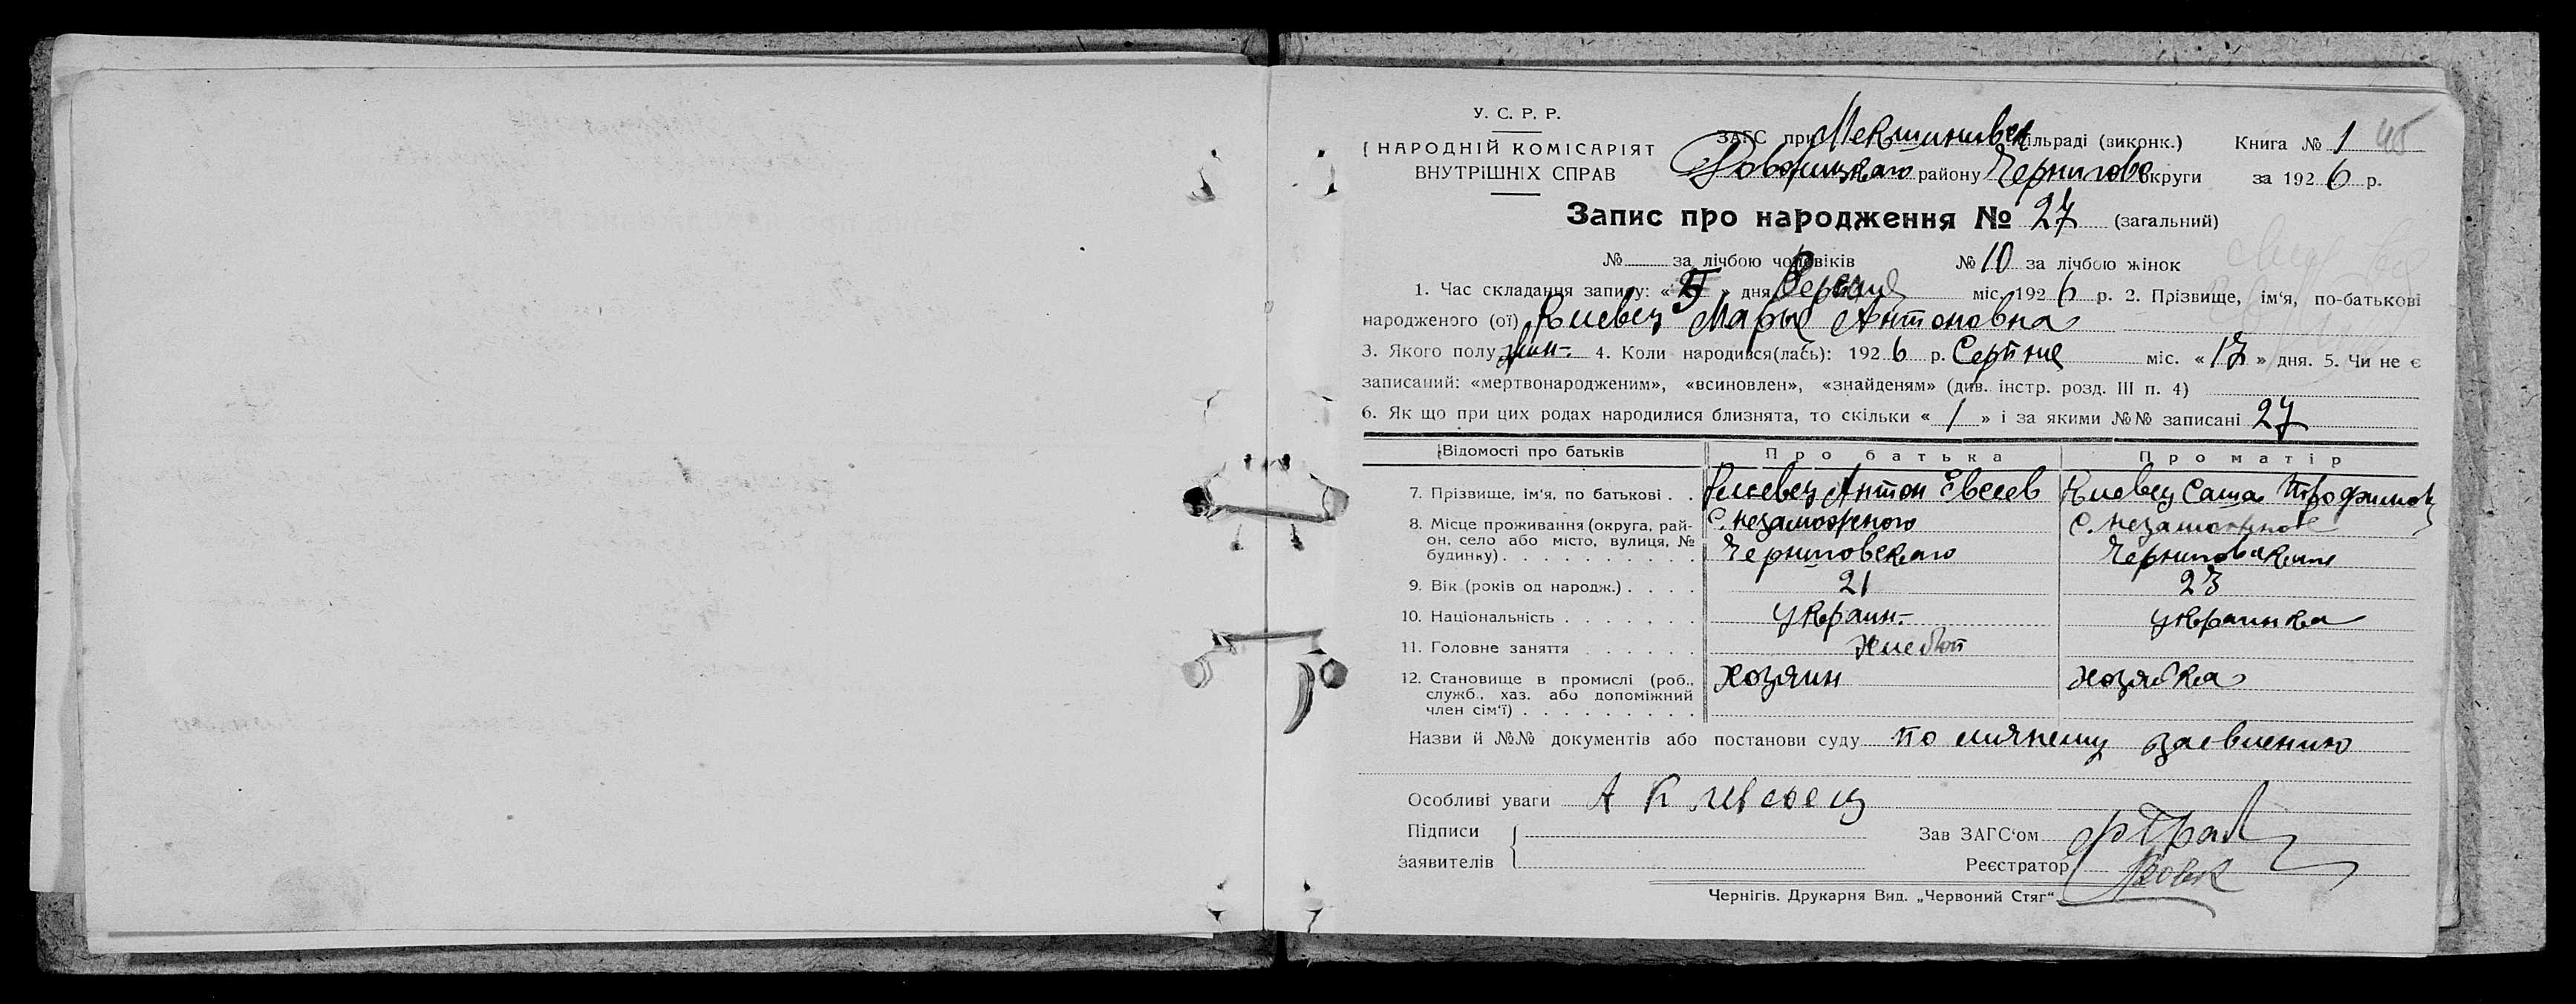 У. С. Р. Р.
НАРОДНІЙ КОМІСАРІЯТ
ВНУТРІШНІХ СПРАВ
ЗАГС при сільраді (виконк.) Книга № 1 45
району Чернигово округи за 192 6 р.
Запис про народження № 27 (загальний)
№ за лічбою чоловіків № 10 за лічбою жінок
1. Час складання запису: « » дня міс. 192 6 р. 2. Прізвище, ім'я, по-батькові
народженого (ої) Клевец Марья Антоновна
3. Якого полу жин- 4. Коли народився(лась): 192 6 р. Серпня міс. « 17 » дня. 5. Чи не є
записаний: «мертвонародженим», «всиновлен», «знайденям» (див. інстр. розд. III п. 4)
6. Як що при цих родах народилися близнята, то скільки « 1 » і за якими №№ записані 27
Відомості про батьків Про батька Про матір
7. Прізвище, ім'я, по батькові . . Клевец Антон Евсеев Клевец Саша Трофимов
8. Місце проживання (округа, рай-
он, село або місто, вулиця, №
будинку) . . . . . . . . . .
С. незаможного С. незаможного
Черниговского Черниговского
9. Вік (років од народж.) . . . . 21 23
10. Національність . . . . . . . украин- украинка
11. Головне заняття . . . . . . Хлебоп
12. Становище в промислі (роб.,
служб., хаз. або допоміжний
член сім'ї) . . . . . . . . .
хозяин хозяйка
Назви й №№ документів або постанови суду по заевлению
Особливі уваги А Клевец
Підписи
заявителів
Зав ЗАГС'ом
Реєстратор
Чернігів. Друкарня Вид. „Червоний Стяг“.